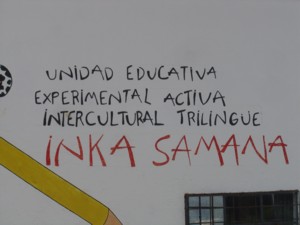 UNIDAD EDUCATIVA
EXPERIMENTAL ACTIVA
INTERCULTURAL TRILINGÜE
INKA SAMANA